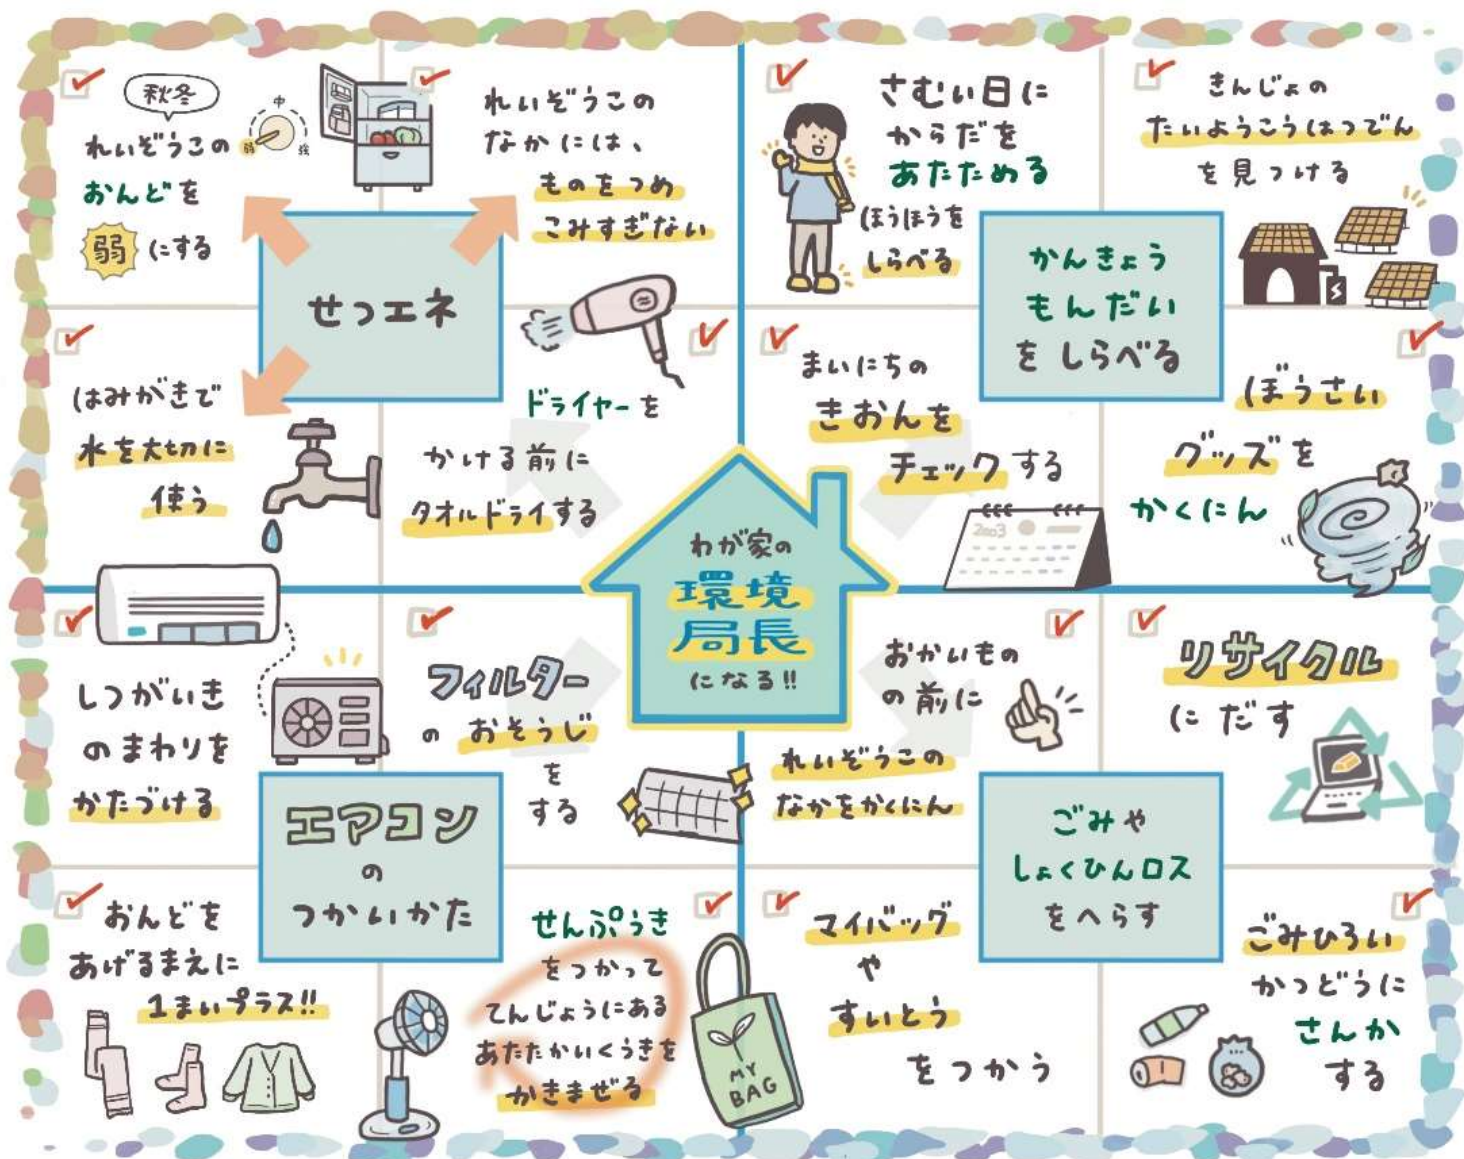 秋冬
れいぞうこの
おんどを
弱にする
弱
中
強
れいぞうこの
なかには、
ものをつめ
こみすぎない
せつエネ
はみがきで
水を大切に
使う
ドライヤーを
かける前に
タオルドライする
さむい日に
からだを
あたためる
ほうほうを
しらべる
きんじょの
たいようこうはつでん
を見つける
かんきょう
もんだい
をしらべる
まいにちの
きおんを
チェックする
2003
ぼうさい
グッズを
かくにん
わが家の
環境
局長
になる!!
しつがいき
のまわりを
かたづける
フィルター
のおそうじ
を
する
エアコン
の
つかいかた
おんどを
あげるまえに
1まいプラス!!
せんぷうき
をつかって
てんじょうにある
あたたかいくうきを
かきまぜる
おかいもの
の前に
れいぞうこの
なかをかくにん
リサイクル
にだす
ごみや
しょくひんロス
をへらす
マイバッグ
や
すいとう
をつかう
MY
BAG
ごみひろい
かつどうに
さんか
する